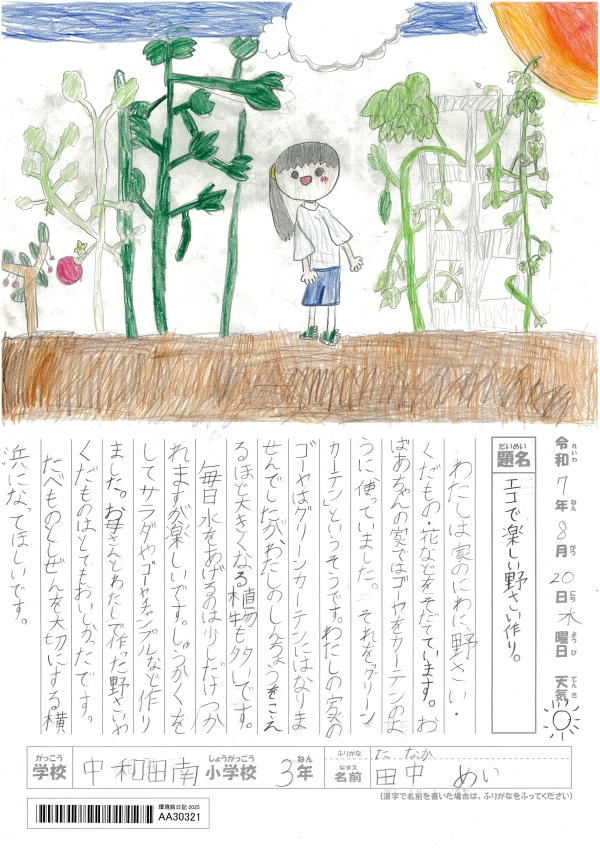 令和7年8月20日水曜日 天気
れいわ ねん がつ にち ようび てんき
だいめい
題名
エコで楽しい野さい作り。
わたしは家のにわに、野さい・
くだもの・花などをそだてています。お
ばあちゃんの家ではゴーヤをカーテンのよ
うに使っていました。それを「グリーン
カーテン」というそうです。わたしの家の
ゴーヤはグリーンカーテンにはなりま
せんでしたが、わたしのしんちょうをこえ
るほど大きくなる植物も多いです。
毎日水をあげるのは少しだけつか
れますが楽しいです。しゅうかくを
してサラダやゴーヤチャンプルなど作り
ました。お母さんとわたしで作った野さいや
くだものはとてもおいしかったです。
たべものとしぜんを大切にする横
兵になってほしいです。
がっこう しょうがっこう ねん
学校 中和田南小学校 3年
ふりがな たなか
なまえ
名前 田中 めい
(漢字で名前を書いた場合は、ふりがなをふってください)
環境絵日記2025
AA30321